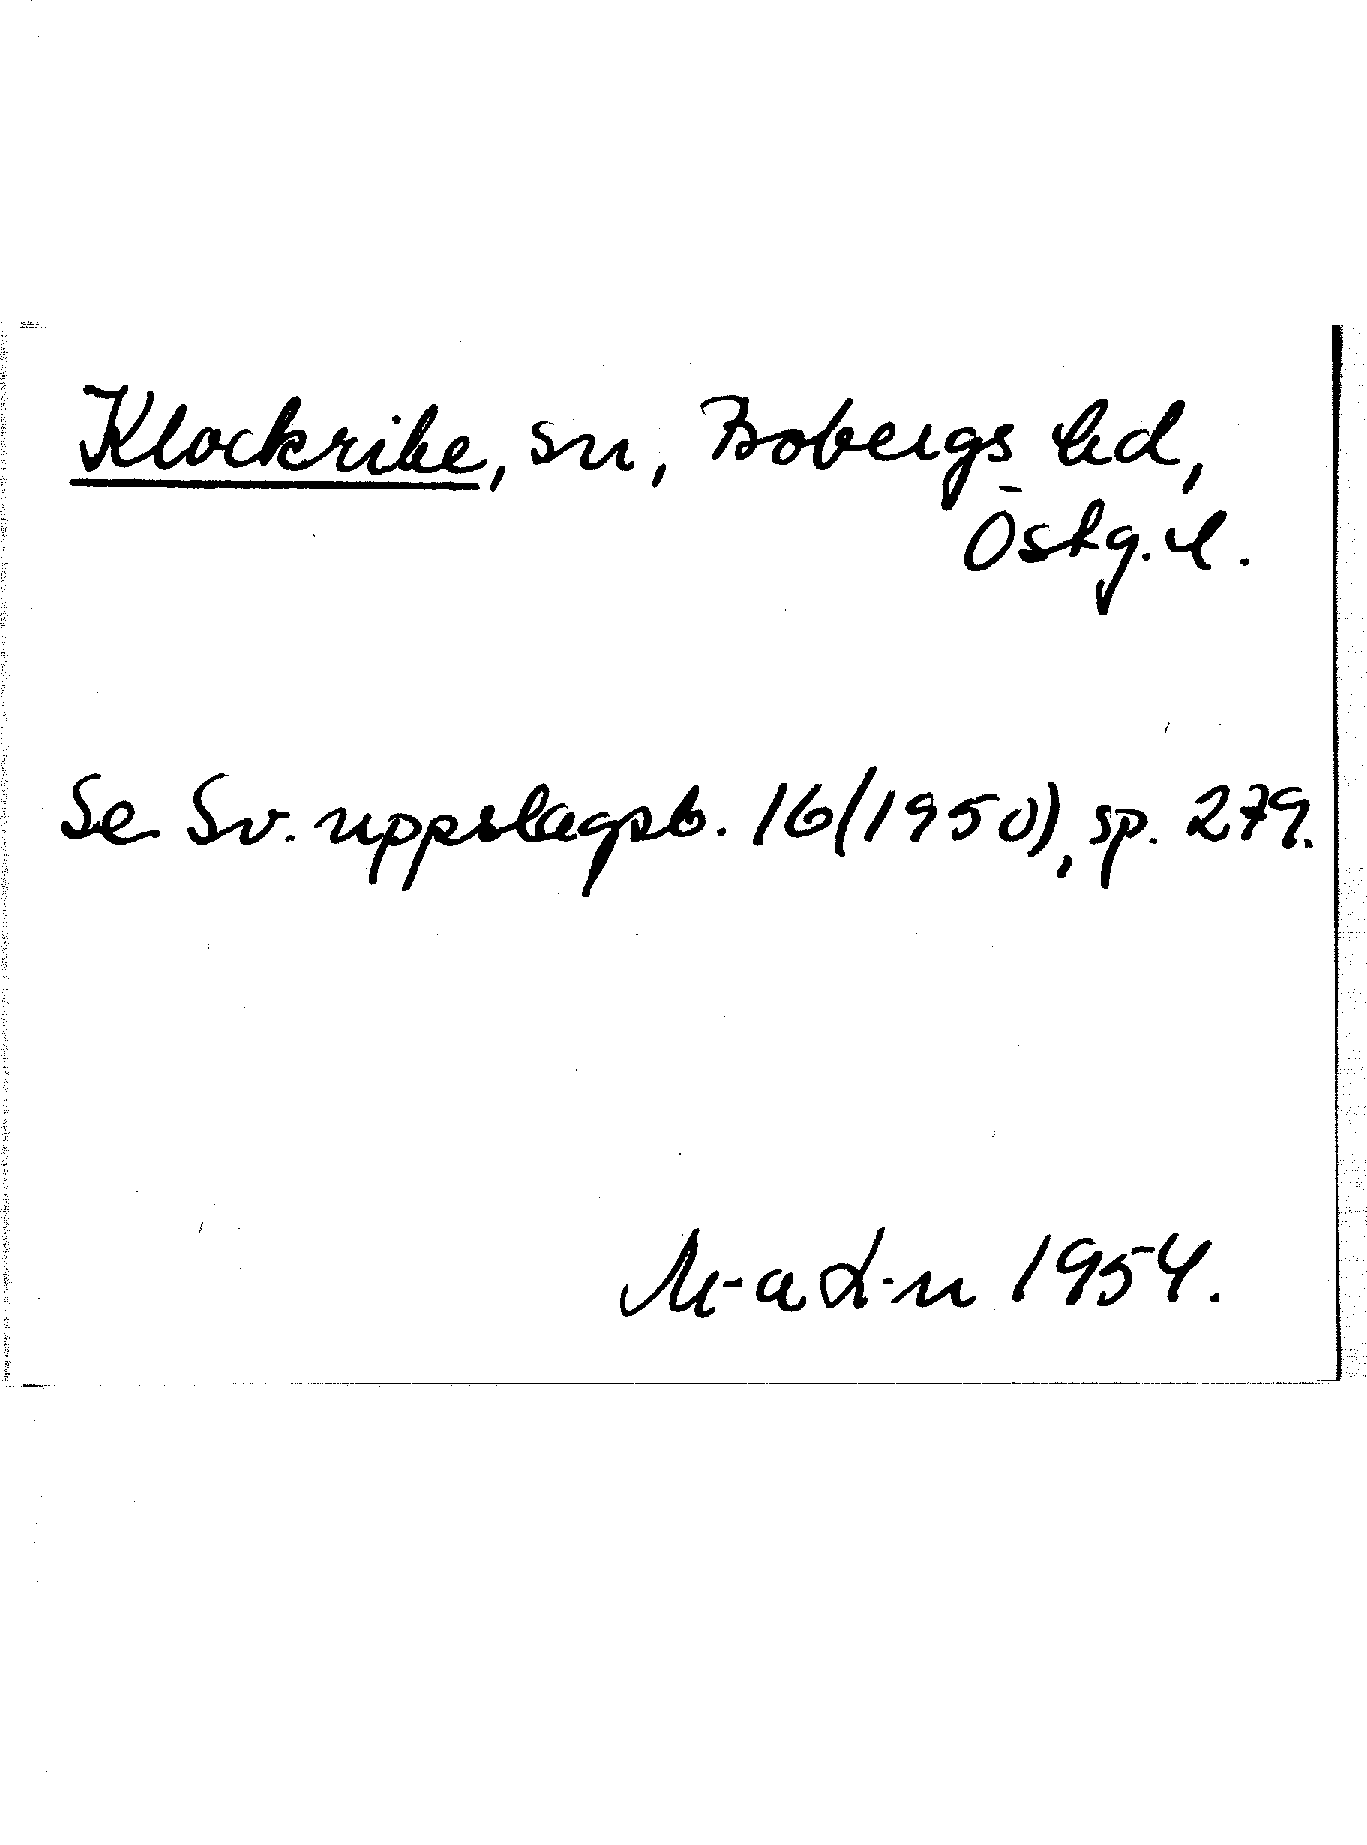 Klockrike, sn, Bobergs hd,
Östg. l.
Se Sv. uppslagsb. 16(1950), sp. 279.
M-a L-n 1954.